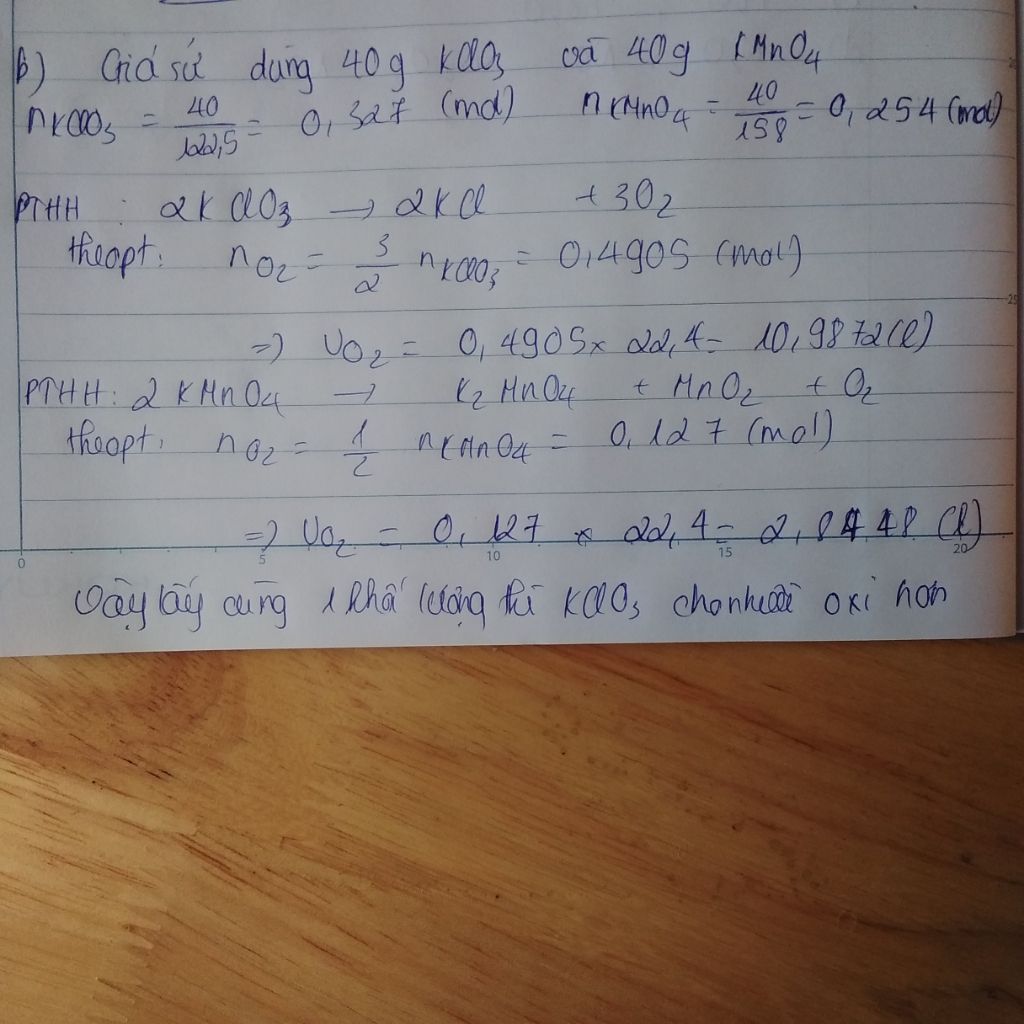 b) Giả sử dùng 40g KClO3 và 40g KMnO4
nKClO3 = 40/122,5 = 0,327 (mol) nKMnO4 = 40/158 = 0,254 (mol)
PTHH : 2KClO3 → 2KCl + 3O2
theo pt: nO2 = 3/2 nKClO3 = 0,4905 (mol)
=> VO2 = 0,4905 x 22,4 = 10,9872 (l)
PTHH: 2KMnO4 → K2MnO4 + MnO2 + O2
theo pt: nO2 = 1/2 nKMnO4 = 0,127 (mol)
=> VO2 = 0,127 x 22,4 = 2,8448 (l)
0 5 10 15 20
Vậy lấy cùng 1 khối lượng thì KClO3 cho nhiều oxi hơn